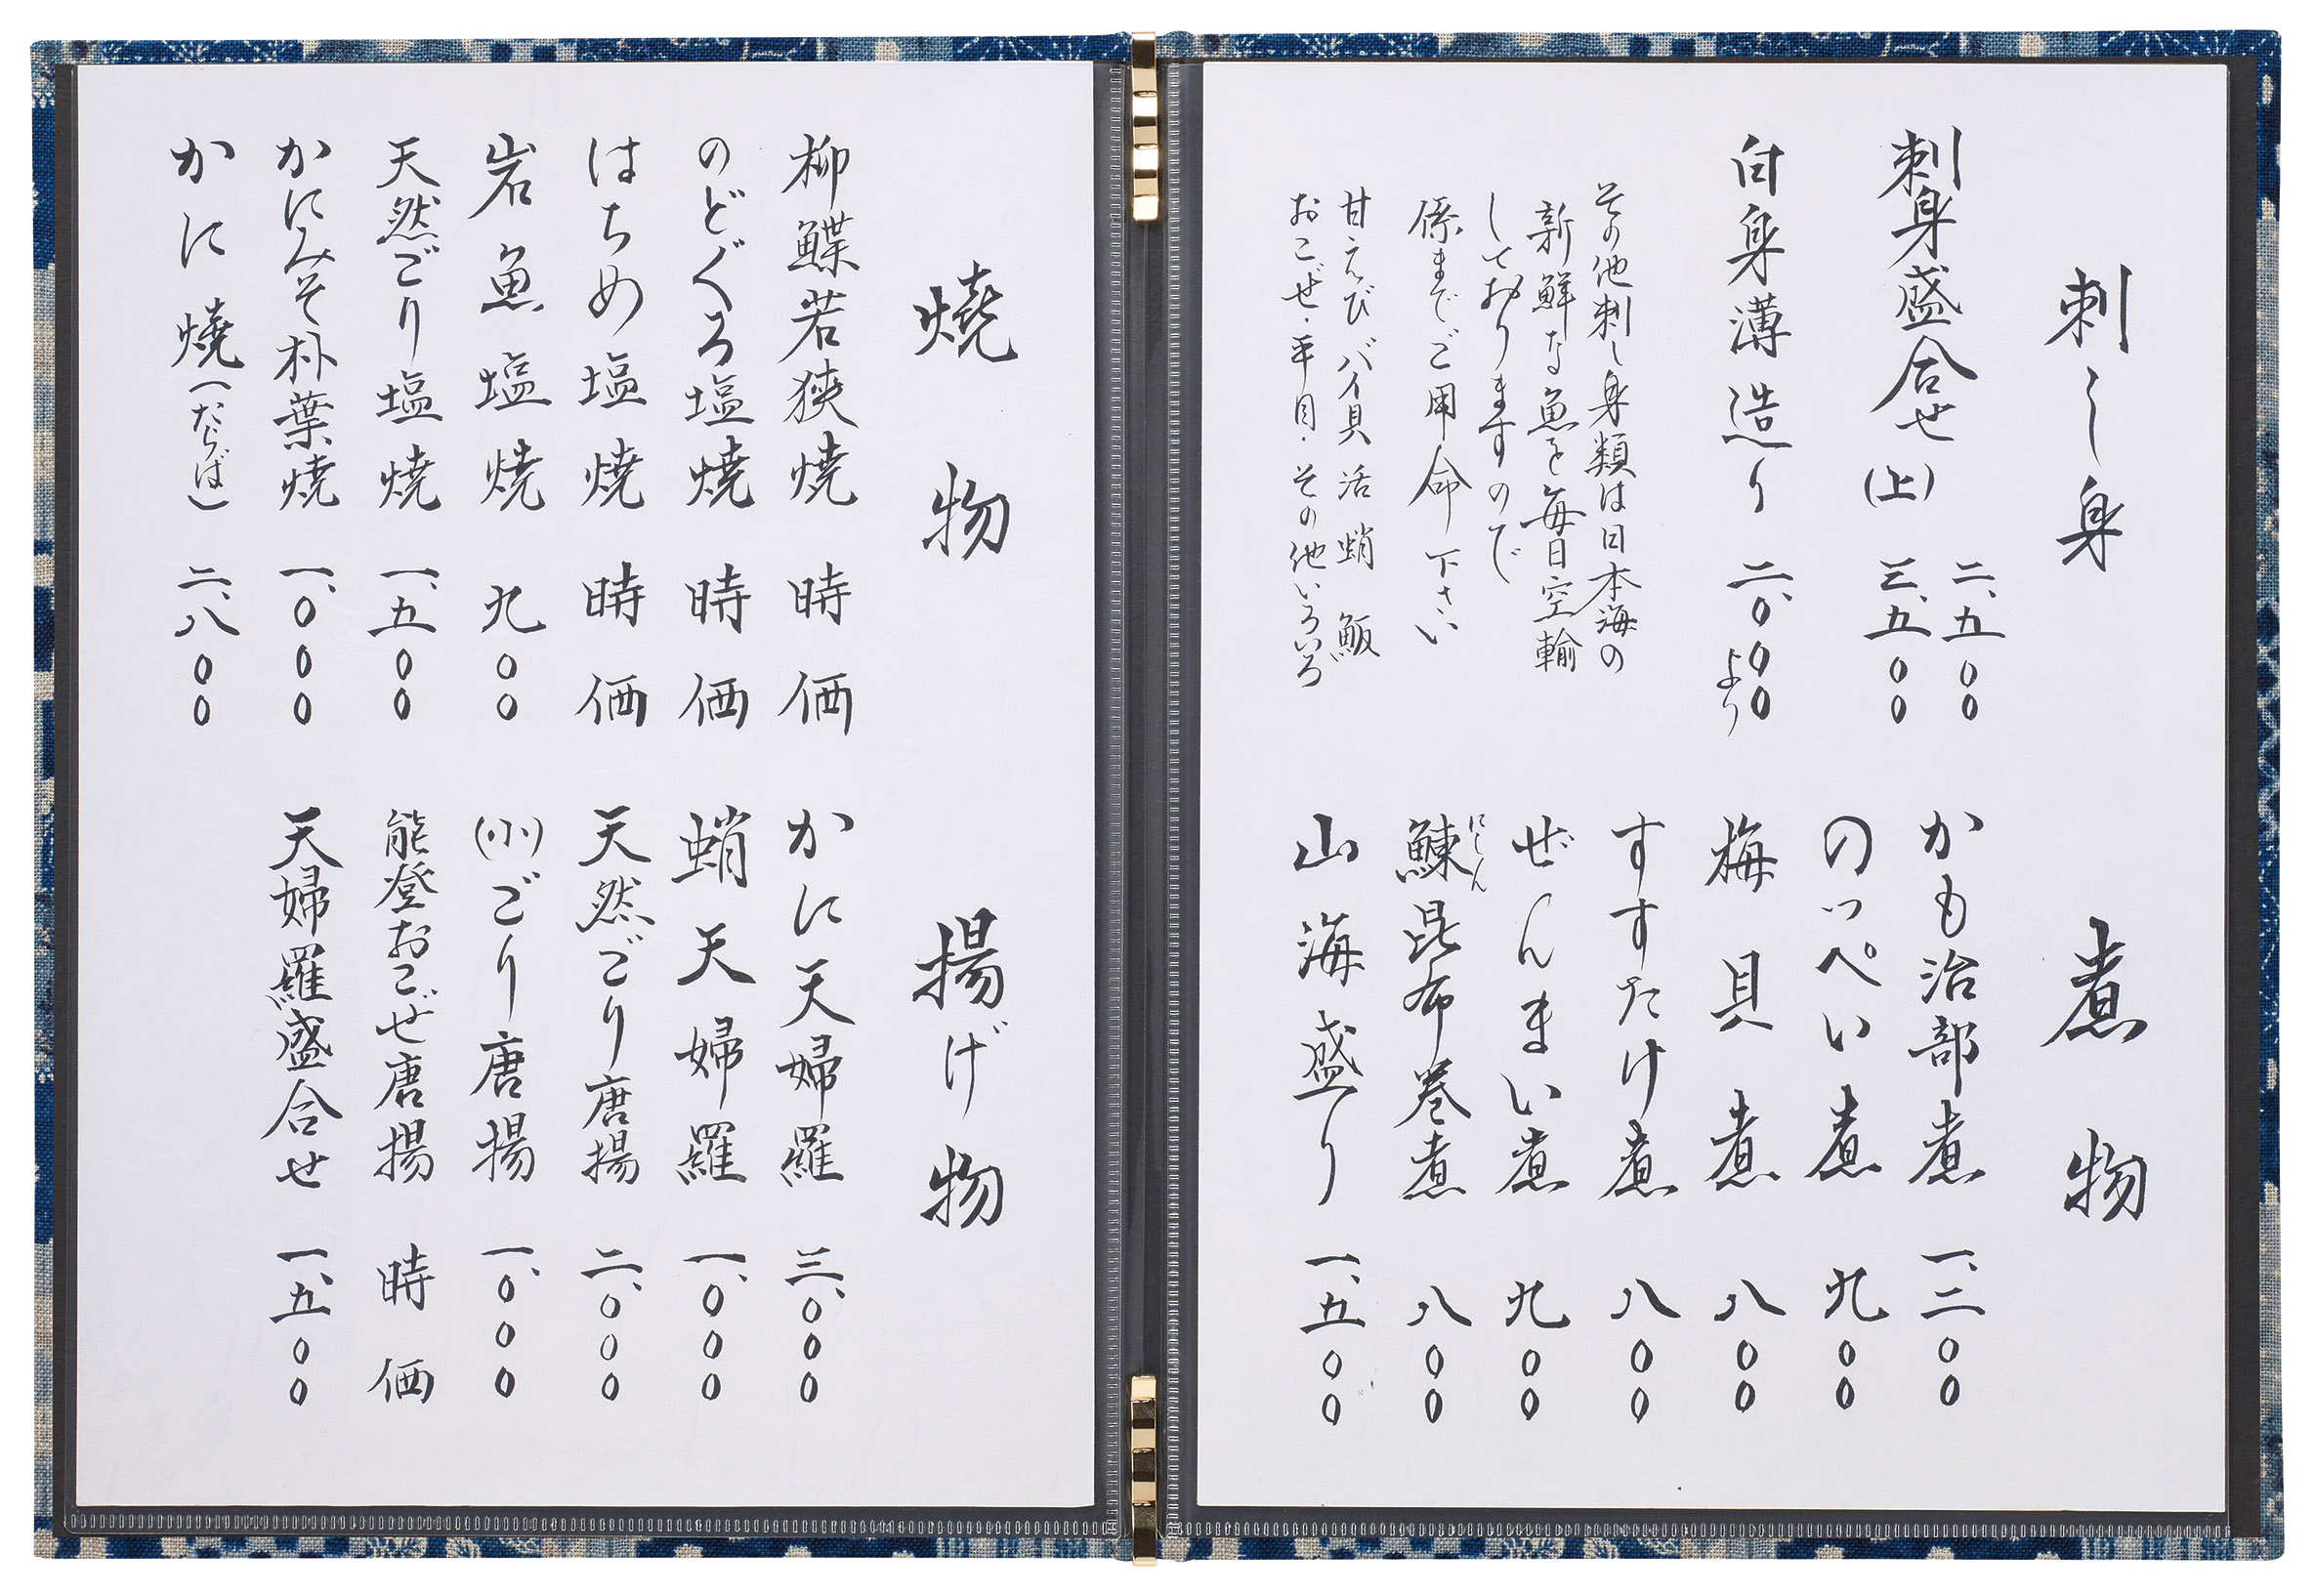 刺し身
刺身盛合せ 二、五〇〇
(上) 三、五〇〇
白身薄造り 二、〇〇〇より
その他刺し身類は日本海の
新鮮な魚を毎日空輸
しておりますので
係までご用命下さい
甘えび バイ貝 活蛸 鰤
おこぜ・平目・その他いろいろ
煮物
かも治部煮 一、二〇〇
のっぺい煮 九〇〇
梅貝煮 八〇〇
すすたけ煮 八〇〇
ぜんまい煮 九〇〇
にしん
鰊昆布巻煮 八〇〇
山海盛り 一、五〇〇
焼物
柳鰈若狭焼 時価
のどぐろ塩焼 時価
はちめ塩焼 時価
岩魚塩焼 九〇〇
天然ごり塩焼 一、五〇〇
かにみそ朴葉焼 一、〇〇〇
かに焼(たらば) 二、八〇〇
揚げ物
かに天婦羅 三、〇〇〇
蛸天婦羅 一、〇〇〇
天然ごり唐揚 二、〇〇〇
(小)ごり唐揚 一、〇〇〇
能登おこぜ唐揚 時価
天婦羅盛合せ 一、五〇〇